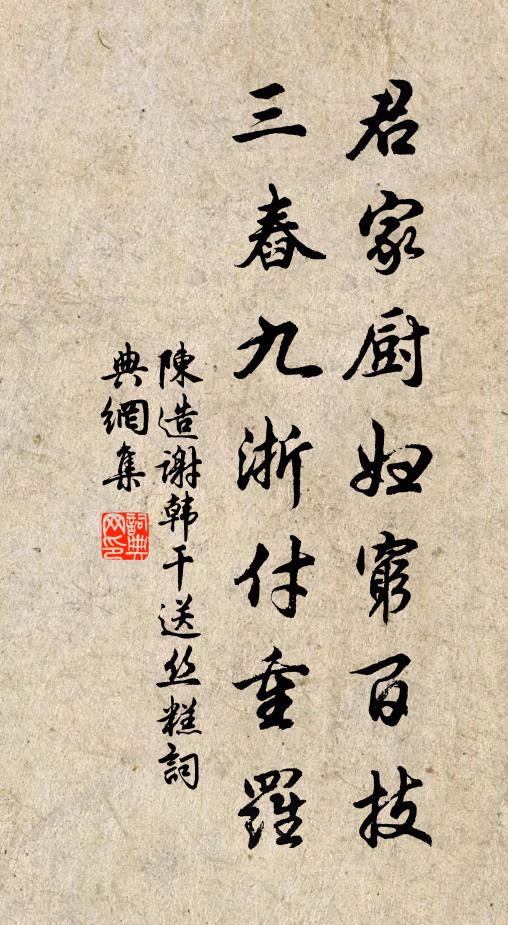 君家厨妇穷百技
三舂九淅付重羅
陳造谢韩干送丝糕詞
典網集
詞典网印